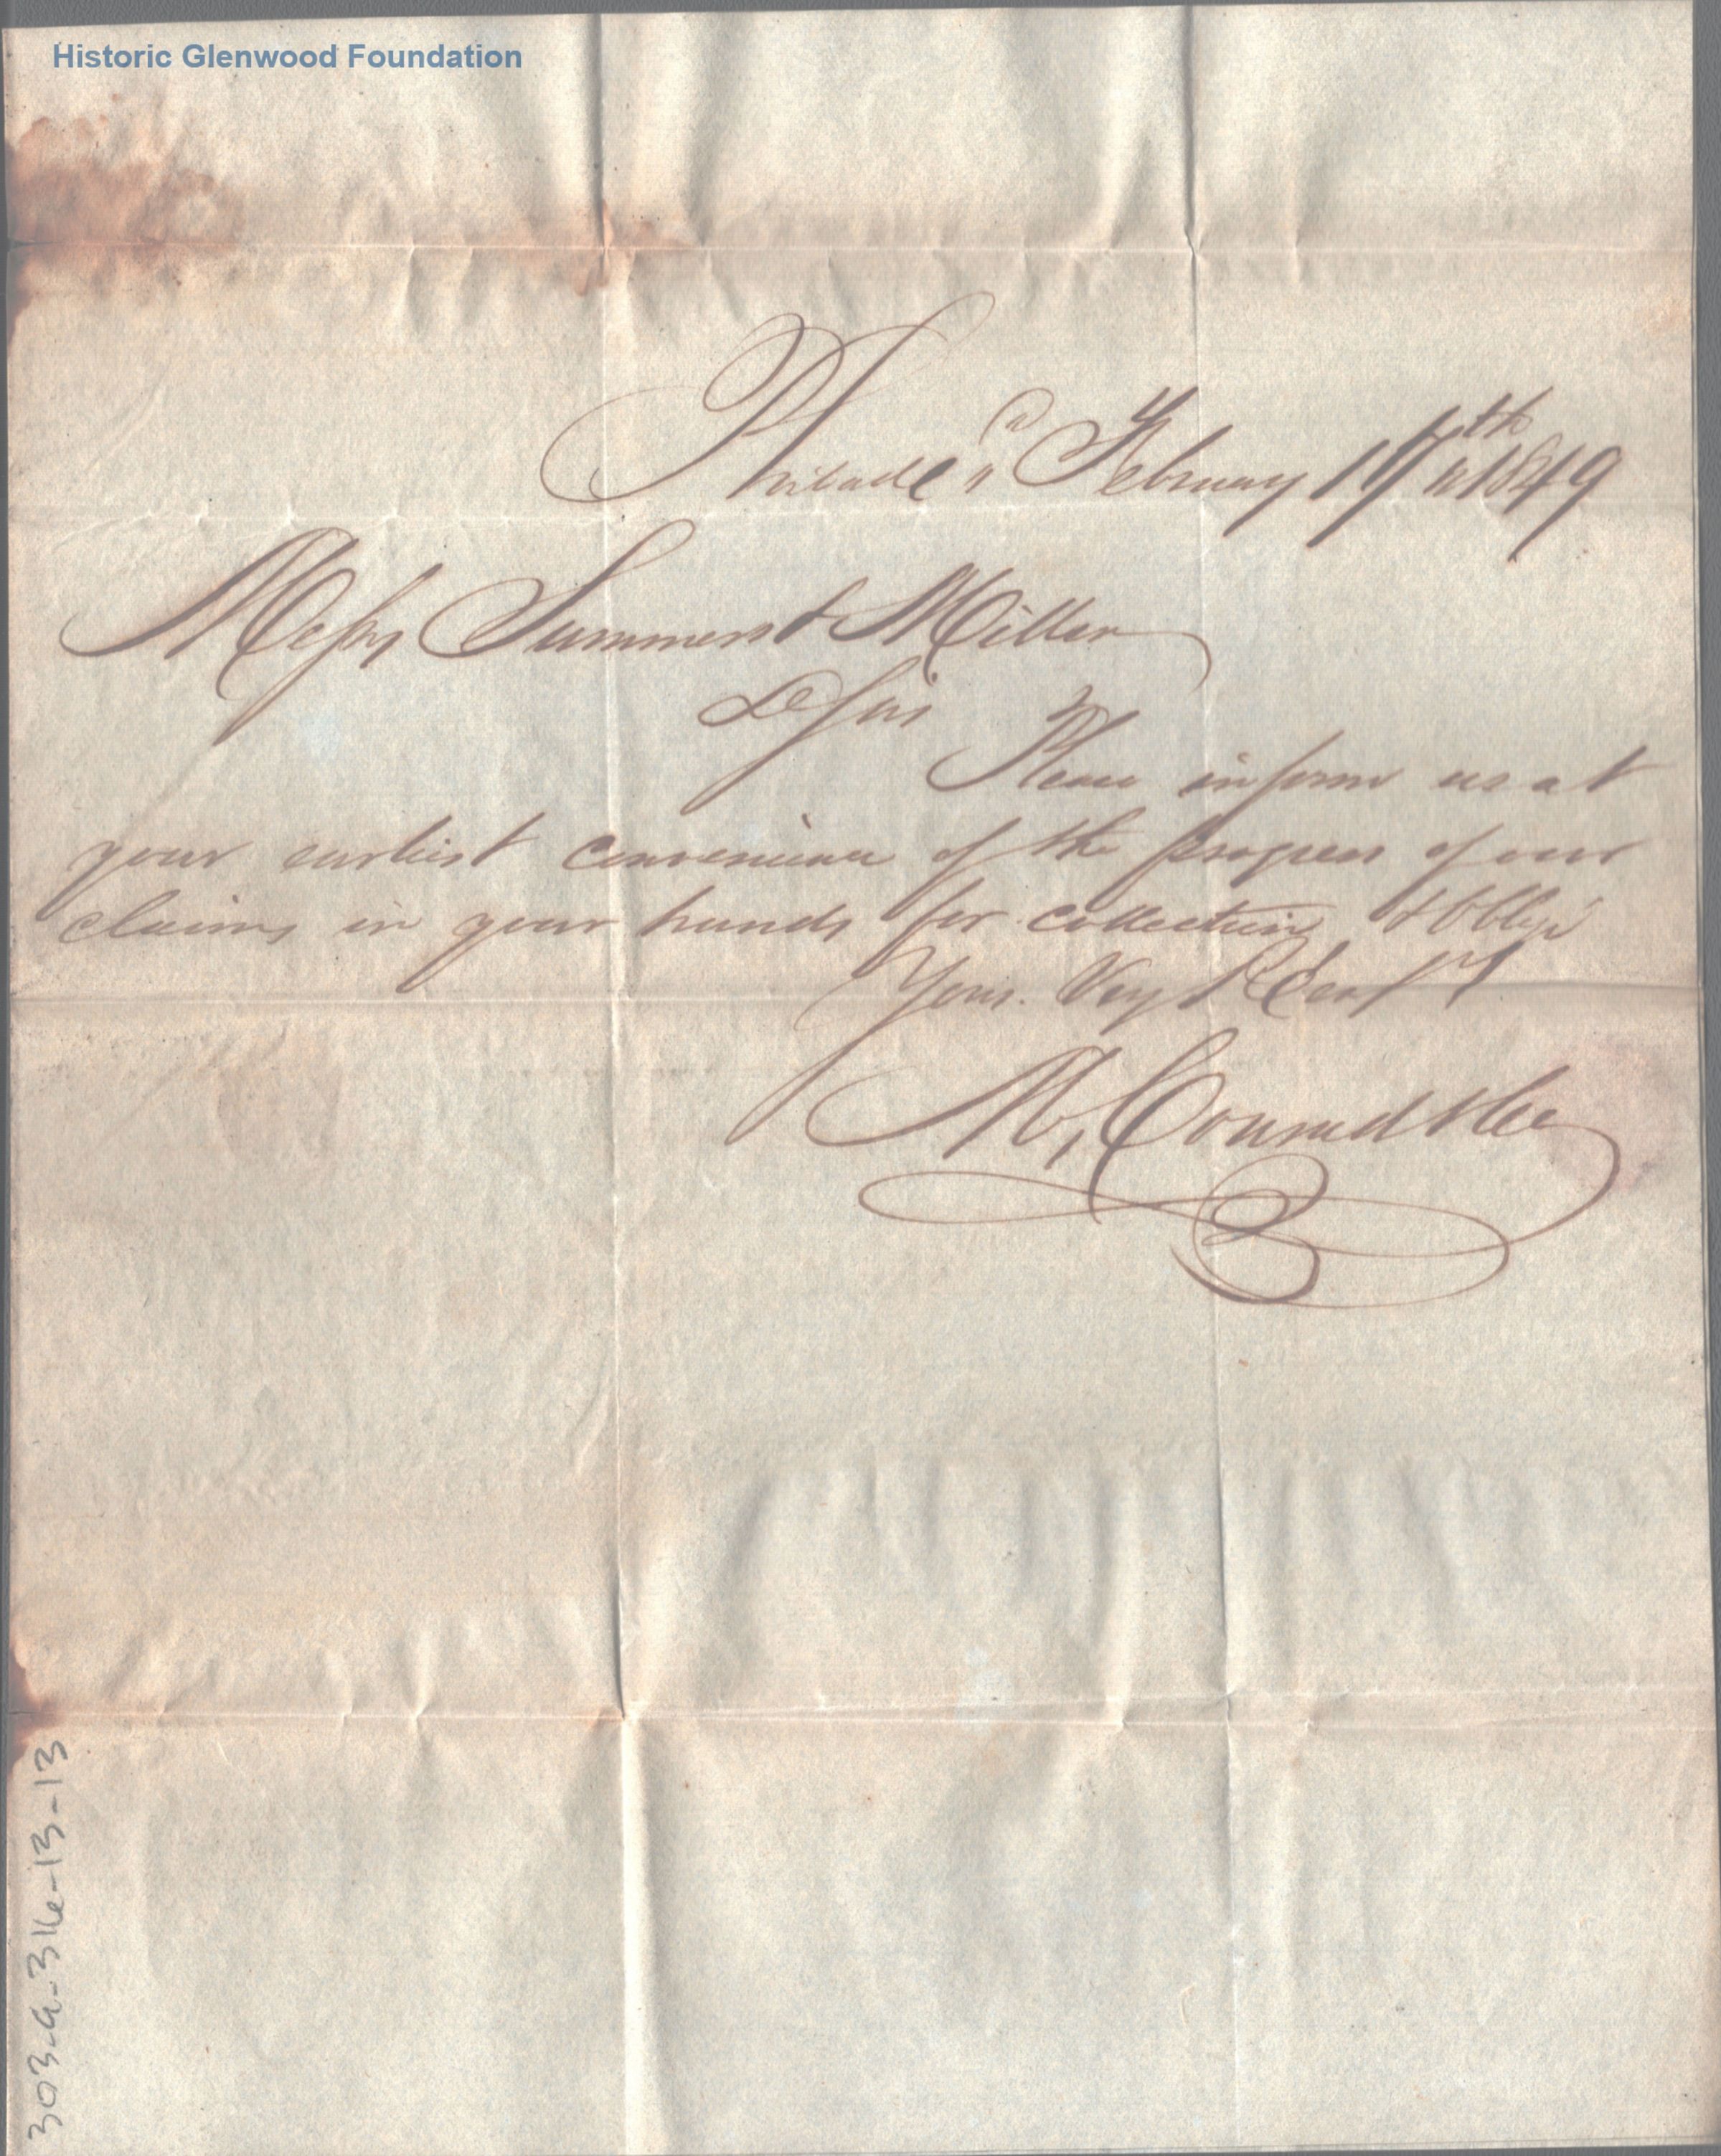 Historic Glenwood Foundation
Philade a February 1849
Messrs Summers & Miller
D Sirs
Please inform us at
your earliest convenience of the progress of our
claims in your hands for collection &
Yours Very
M, Conrad & Co
303-a-316-13-13